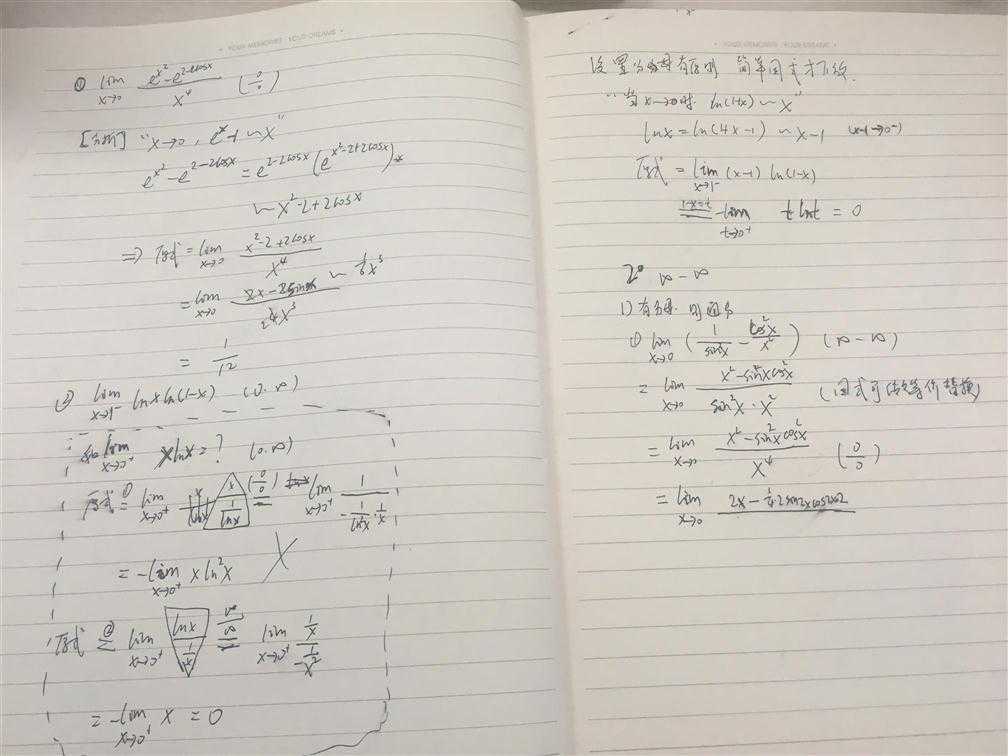 YOUR MEMORIES YOUR DREAMS
① lim x→0 (e^(x²) - e^(2-2cosx)) / x⁴ (0/0)
[分析] "x→0, e^x-1 ~ x"
e^(x²) - e^(2-2cosx) = e^(2-2cosx) (e^(x²-2+2cosx)
~ x²-2+2cosx
⇒ 原式 = lim x→0 (x²-2+2cosx) / x⁴
= lim x→0 (2x-2sinx) / 4x³ ~ 1/6 x³
= 1/12
② lim x→1⁻ lnx ln(1-x) (0·∞)
lim x→0⁺ xlnx = ? (0·∞)
原式 ① = lim x→0⁺ x / (1/lnx) (0/0) = lim x→0⁺ 1 / (-1/ln²x · 1/x)
= -lim x→0⁺ x ln²x X
原式 ② = lim x→0⁺ lnx / (1/x) ∞/∞ = lim x→0⁺ (1/x) / (-1/x²)
= -lim x→0⁺ x = 0
YOUR MEMORIES YOUR DREAMS
设置分母有原则 简单因式才下放.
"当x→0时, ln(1+x) ~ x"
lnx = ln(1+x-1) ~ x-1 (x-1→0⁻)
原式 = lim x→1⁻ (x-1) ln(1-x)
1-x=t = -lim t→0⁺ t lnt = 0
2° ∞ - ∞
1) 有分母, 则通分
① lim x→0 (1/sin²x - cos²x/x²) (∞-∞)
= lim x→0 (x²-sin²xcos²x) / (sin²x·x²) (因式可做等价替换)
= lim x→0 (x²-sin²xcos²x) / x⁴ (0/0)
= lim x→0 2x - 1/4·2sin2xcos2x·2